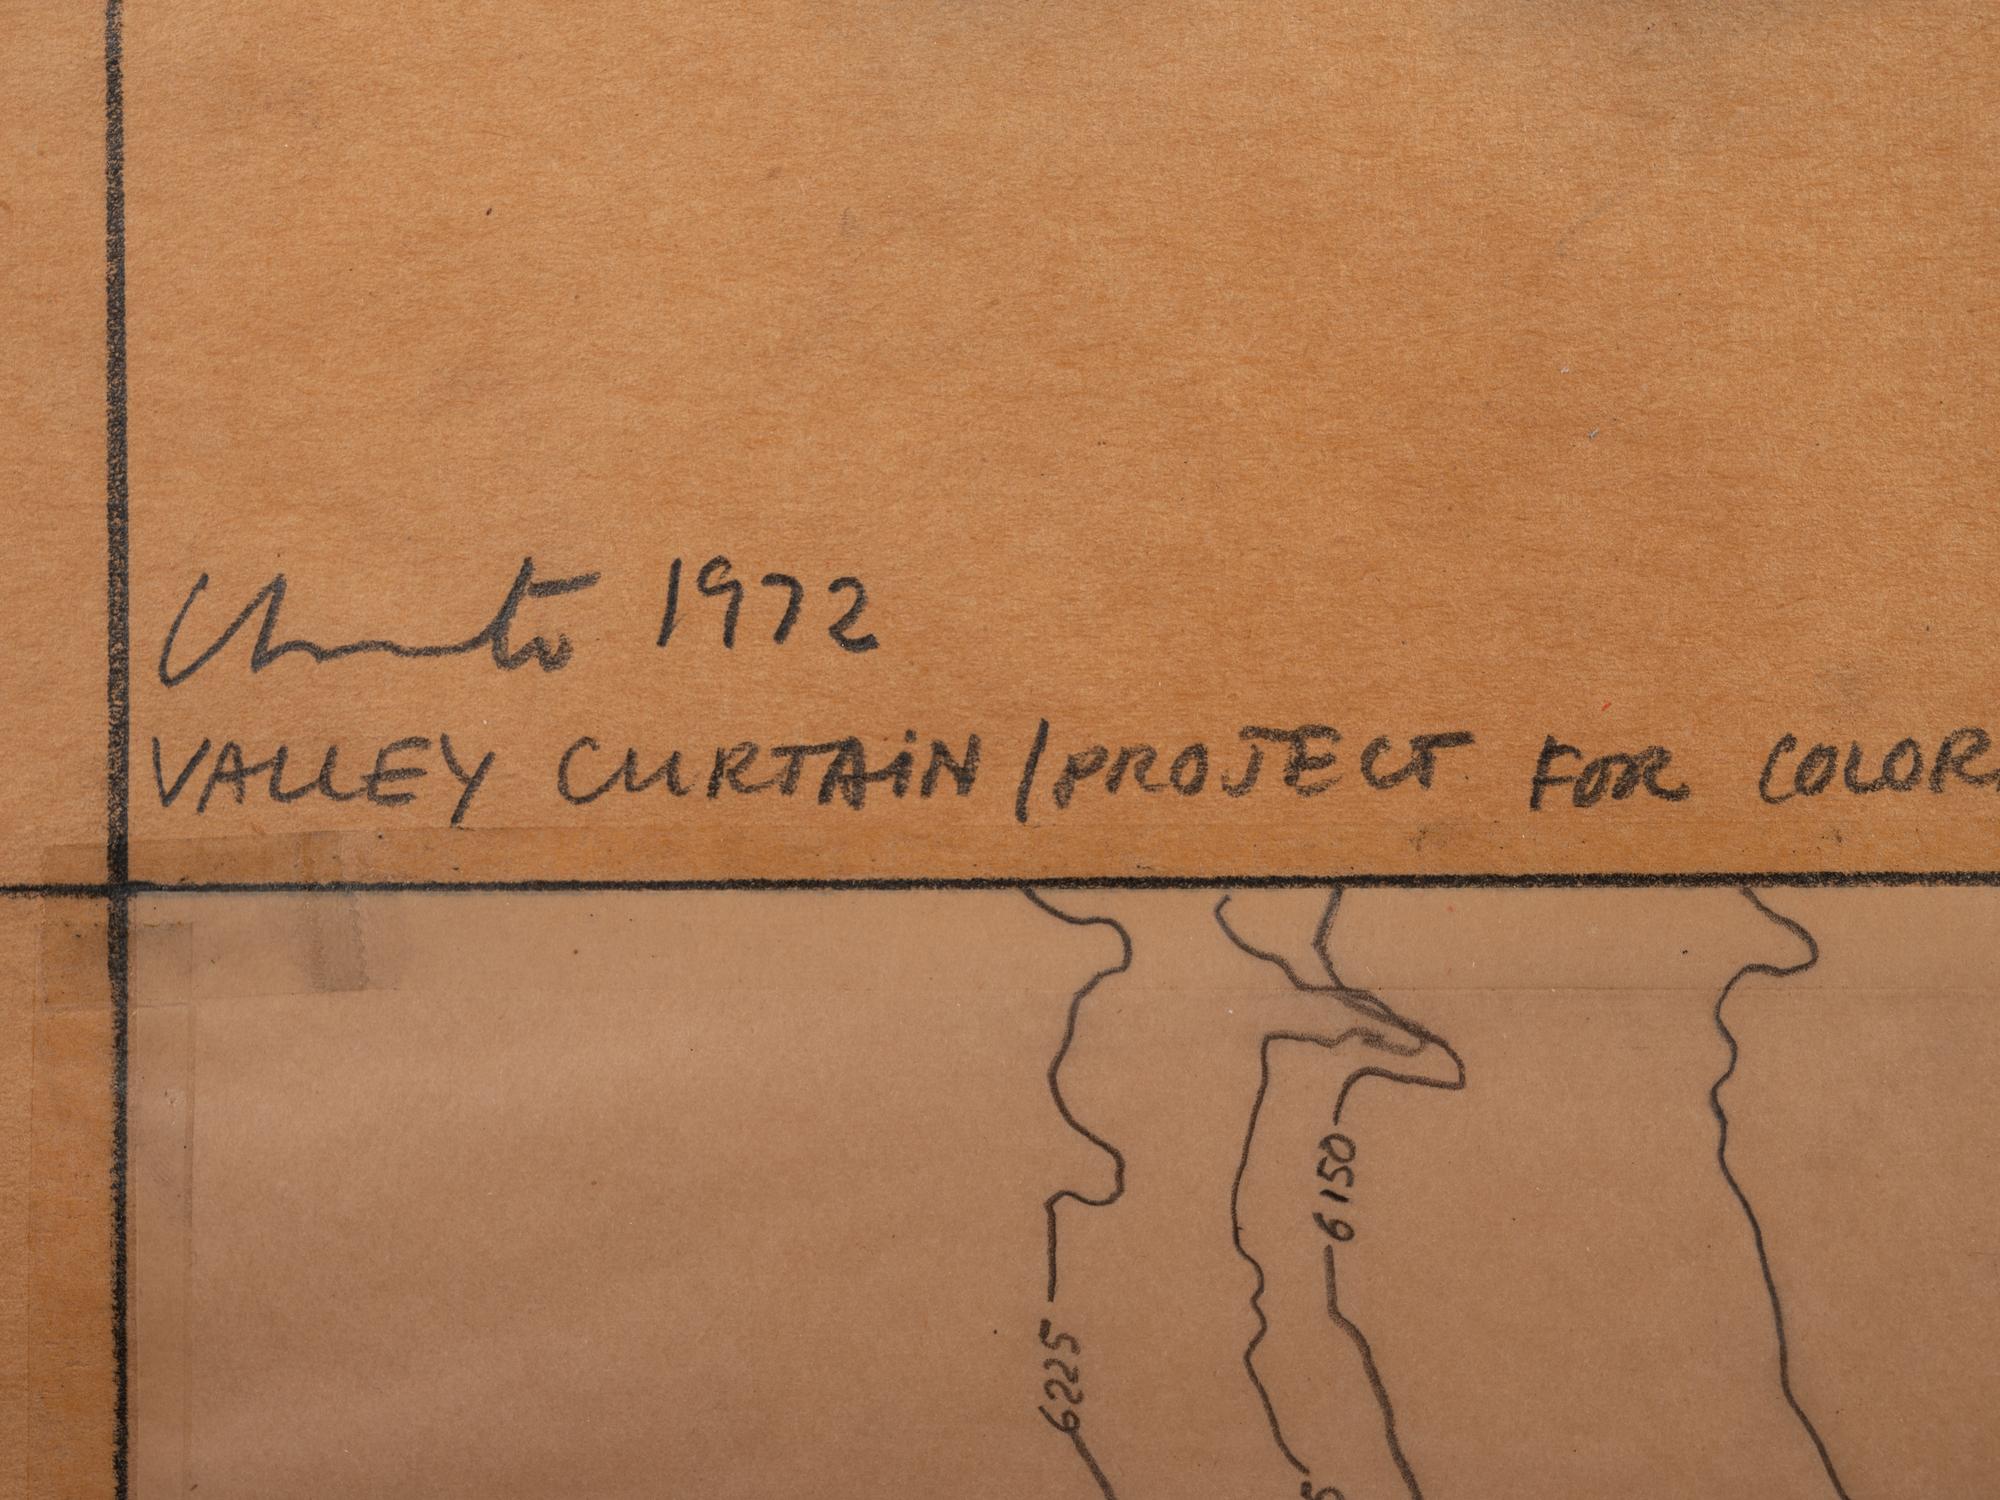 Christo 1972
VALLEY CURTAIN / PROJECT FOR COLOR
6150
6225
5